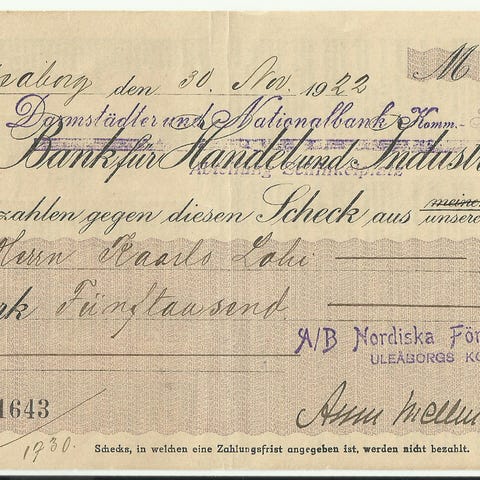 den 30. Nov. 1922 M
Darmstädter und Nationalbank Komm.-
Bank für Handel und Industr
Abteilung Schinkelplatz
zahlen gegen diesen Scheck aus meine
unsere
Herrn Kaarlo Lohi
rk Fünftausend
A/B Nordiska För
ULEÅBORGS KO
1643
1730.
Schecks, in welchen eine Zahlungsfrist angegeben ist, werden nicht bezahlt.